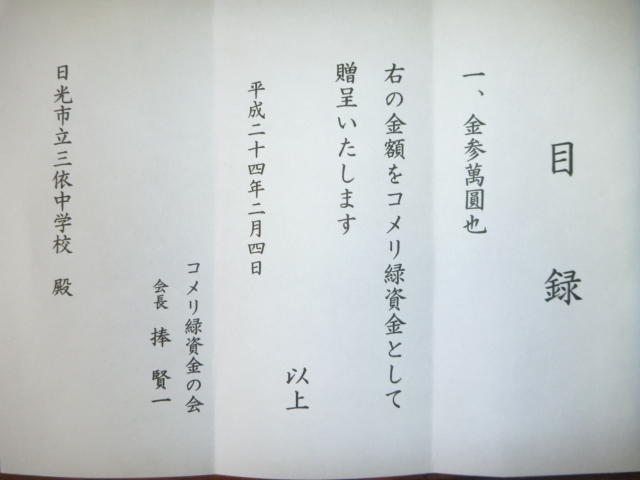 目録
一、金参萬圓也
右の金額をコメリ緑資金として
贈呈いたします
以上
平成二十四年二月四日
コメリ緑資金の会
会長 捧 賢一
日光市立三依中学校 殿